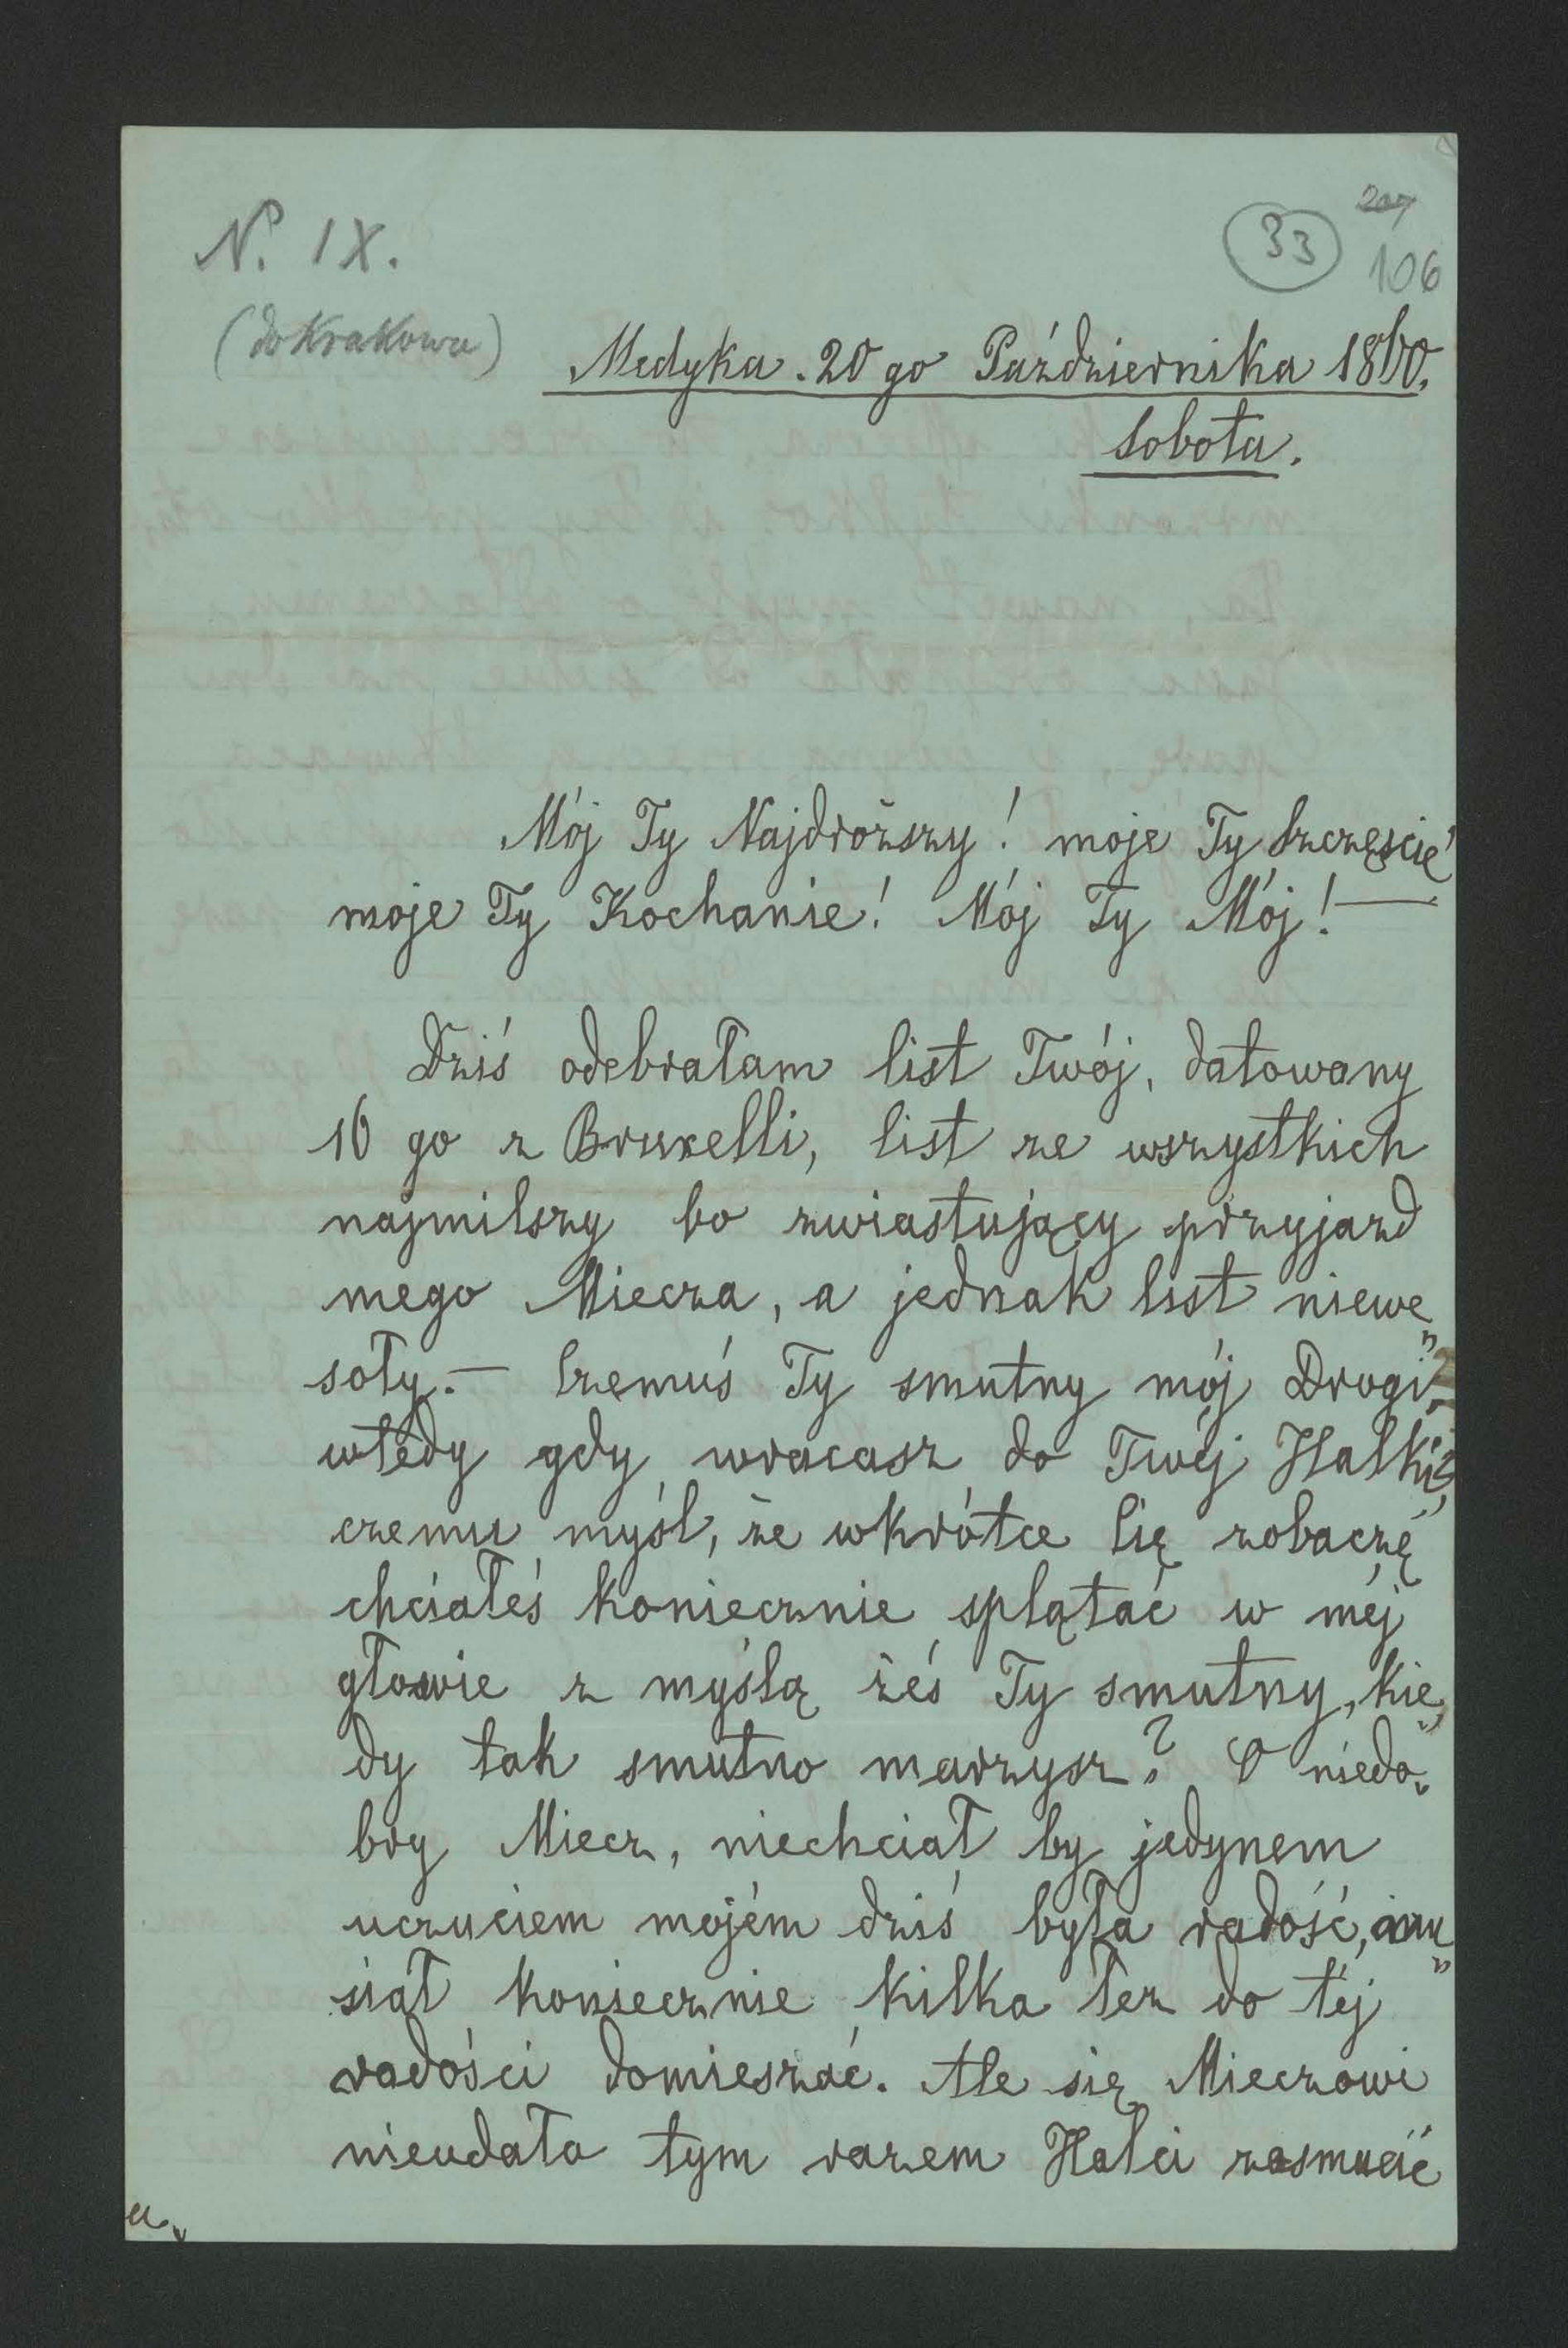 N. IX.
33
207
106
(do Krakowa)
Medyka. 20 go Października 1860.
Sobota.
Mój Ty Najdroższy! moje Ty Szczęście
moje Ty Kochanie! Mój Ty Mój! —
Dziś odebrałam list Twój, datowany
16 go z Bruxelli, list ze wszystkich
najmilszy bo zwiastujący przyjazd
mego Miecza, a jednak list niewe„
soły. — Czemuś Ty smutny mój Drogi,
wtedy gdy wracasz do Twéj Halki?
czemu myśl, że wkrótce Cię zobaczę
chciałeś koniecznie splątać w méj
głowie z myślą żeś Ty smutny, kie„
dy tak smutno marzysz? O niedo„
bry Miecz, niechciał by jedynem
uczuciem mojém dziś była radość, mu„
siał koniecznie kilka łez do téj
radości domieszać. Ale się Mieczowi
nieudało tym razem Halci zasmucić
a„